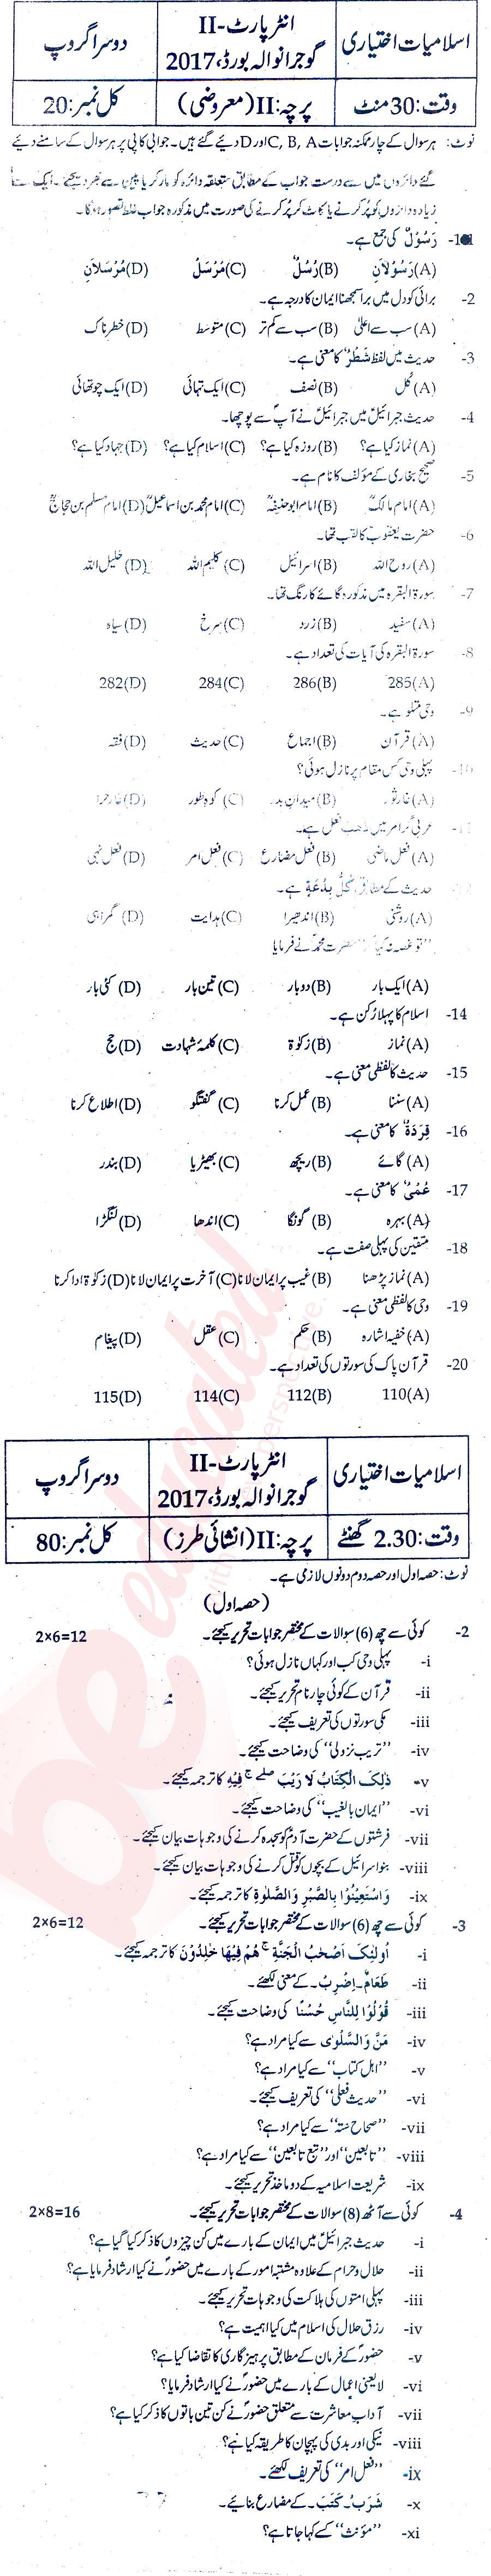 اسلامیات اختیاری
انٹر پارٹ-II
گوجرانوالہ بورڈ،2017
دوسرا گروپ
وقت:30منٹ
پرچہ:II(معروضی)
کل نمبر:20
نوٹ: ہر سوال کے چار ممکنہ جوابات A ,B ,C اور D دیئے گئے ہیں۔ جوابی کاپی پر ہر سوال کے سامنے دیئے
گئے دائروں میں سے درست جواب کے مطابق متعلقہ دائرہ کو مارکر یا پین سے بھر دیجئے۔ ایک سے
زیادہ دائروں کو پُر کرنے یا کاٹ کر پُر کرنے کی صورت میں مذکورہ جواب غلط تصور ہوگا۔
1- رَسُوْلٌ کی جمع ہے۔
(A)رَسُوْلَانِ (B)رُسُلٌ (C)مُرْسَلٌ (D)مُرْسَلَانِ
2- برائی کو دل میں برا سمجھنا ایمان کا درجہ ہے۔
(A)سب سے اعلیٰ (B)سب سے کم تر (C)متوسط (D)خطرناک
3- حدیث میں لفظ شَطْرُ کا معنی ہے۔
(A)کُل (B)نصف (C)ایک تہائی (D)ایک چوتھائی
4- حدیث جبرائیلؑ میں جبرائیلؑ نے آپؐ سے پوچھا۔
(A)نماز کیا ہے؟ (B)روزہ کیا ہے؟ (C)اسلام کیا ہے؟ (D)جہاد کیا ہے؟
5- صحیح بخاری کے مؤلف کا نام ہے۔
(A)امام مالکؒ (B)امام ابوحنیفہؒ (C)امام محمد بن اسماعیلؒ (D)امام مسلم بن حجاجؒ
6- حضرت یعقوبؑ کا لقب تھا۔
(A)روح اللہ (B)اسرائیل (C)کلیم اللہ (D)خلیل اللہ
7- سورۃ البقرہ میں مذکورہ گائے کا رنگ تھا۔
(A)سفید (B)زرد (C)سرخ (D)سیاہ
8- سورۃ البقرہ کی آیات کی تعداد ہے۔
285(A) 286(B) 284(C) 282(D)
9- وحی متلو ہے۔
(A)قرآن (B)اجماع (C)حدیث (D)فقہ
10- پہلی وحی کس مقام پر نازل ہوئی؟
(A)غار ثور (B)میدان بدر (C)کوہ طور (D)غار حرا
11- عربی گرامر میں ذھب فعل ہے۔
(A)فعل ماضی (B)فعل مضارع (C)فعل امر (D)فعل نہی
حدیث کے مطابق كُلُّ بِدْعَةٍ ہے۔
(A)روشنی (B)اندھیرا (C)ہدایت (D)گمراہی
”تو غصہ نہ کیا کر“ حضرت محمدؐ نے فرمایا
(A)ایک بار (B)دوبار (C)تین بار (D)کئی بار
14- اسلام کا پہلا رکن ہے۔
(A)نماز (B)زکوٰۃ (C)کلمۂ شہادت (D)حج
15- حدیث کا لفظی معنی ہے۔
(A)سننا (B)عمل کرنا (C)گفتگو (D)اطلاع کرنا
16- قِرَدَةٌ کا معنی ہے۔
(A)گائے (B)ریچھ (C)بھیڑیا (D)بندر
17- عُمْیٌ کا معنی ہے۔
(A)بہرہ (B)گونگا (C)اندھا (D)لنگڑا
18- متقین کی پہلی صفت ہے۔
(A)نماز پڑھنا (B)غیب پر ایمان لانا (C)آخرت پر ایمان لانا (D)زکوٰۃ ادا کرنا
19- وحی کا لفظی معنی ہے۔
(A)خفیہ اشارہ (B)حکم (C)عقل (D)پیغام
20- قرآن پاک کی سورتوں کی تعداد ہے۔
110(A) 112(B) 114(C) 115(D)
اسلامیات اختیاری
انٹر پارٹ-II
گوجرانوالہ بورڈ،2017
دوسرا گروپ
وقت:2.30 گھنٹے
پرچہ:II(انشائی طرز)
کل نمبر:80
نوٹ: حصہ اول اور حصہ دوم دونوں لازمی ہے۔
(حصہ اول)
2- کوئی سے چھ(6) سوالات کے مختصر جوابات تحریر کیجئے۔ 2×6=12
i- پہلی وحی کب اور کہاں نازل ہوئی؟
ii- قرآن کے کوئی چار نام تحریر کیجئے۔
iii- مکی سورتوں کی تعریف کیجئے۔
iv- ”ترتیب نزولی“ کی وضاحت کیجئے۔
v- ذٰلِکَ الْکِتَابُ لَا رَیْبَ صلے ج فِیْهِ کا ترجمہ کیجئے۔
vi- ”ایمان بالغیب“ کی وضاحت کیجئے۔
vii- فرشتوں کے حضرت آدمؑ کو سجدہ کرنے کی وجوہات بیان کیجئے۔
viii- بنو اسرائیل کے بچوں کو قتل کرنے کی وجوہات بیان کیجئے۔
ix- وَاسْتَعِیْنُوْا بِالصَّبْرِ وَالصَّلٰوةِ کا ترجمہ کیجئے۔
3- کوئی سے چھ(6) سوالات کے مختصر جوابات تحریر کیجئے۔ 2×6=12
i- اُولٰئِکَ اَصْحٰبُ الْجَنَّةِ ج هُمْ فِیْهَا خٰلِدُوْنَ کا ترجمہ کیجئے۔
ii- طَعَامٌ۔اِضْرِبْ۔ کے معنی لکھئے۔
iii- قُوْلُوْا لِلنَّاسِ حُسْنًا کی وضاحت کیجئے۔
iv- مَنَّ وَالسَّلْوٰی سے کیا مراد ہے؟
v- ”اہل کتاب“ سے کیا مراد ہے؟
vi- ”حدیث فعلی“ کی تعریف کیجئے۔
vii- ”صحاح ستہ“ سے کیا مراد ہے؟
viii- ”تابعین“ اور ”تبع تابعین“ سے کیا مراد ہے؟
ix- شریعت اسلامیہ کے دو ماخذ تحریر کیجئے۔
4- کوئی سے آٹھ(8) سوالات کے مختصر جوابات تحریر کیجئے۔ 2×8=16
i- حدیث جبرائیلؑ میں ایمان کے بارے میں کن چیزوں کا ذکر کیا گیا ہے؟
ii- حلال و حرام کے علاوہ مشتبہ امور کے بارے میں حضورؐ نے کیا ارشاد فرمایا ہے؟
iii- پہلی امتوں کی ہلاکت کی وجوہات تحریر کیجئے۔
iv- رزق حلال کی اسلام میں کیا اہمیت ہے؟
v- حضورؐ کے فرمان کے مطابق پرہیزگاری کا تقاضا کیا ہے؟
vi- لایعنی اعمال کے بارے میں حضورؐ نے کیا ارشاد فرمایا؟
vii- آداب معاشرت سے متعلق حضورؐ نے کن تین باتوں کا ذکر کیا ہے؟
viii- نیکی اور بدی کی پہچان کا طریقہ کیا ہے؟
ix- ”فعل امر“ کی تعریف لکھئے۔
x- شَرِبَ۔کَتَبَ۔ کے مضارع بنائیے۔
xi- ”مؤنث“ کسے کہا جاتا ہے؟